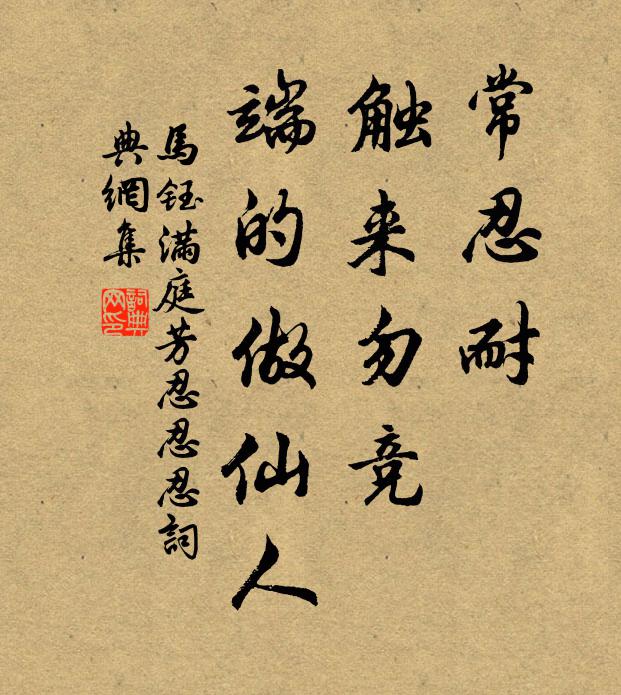 常忍耐
触来勿竞
端的做仙人
馬鈺滿庭芳忍忍忍詞
典網集
詞典网印